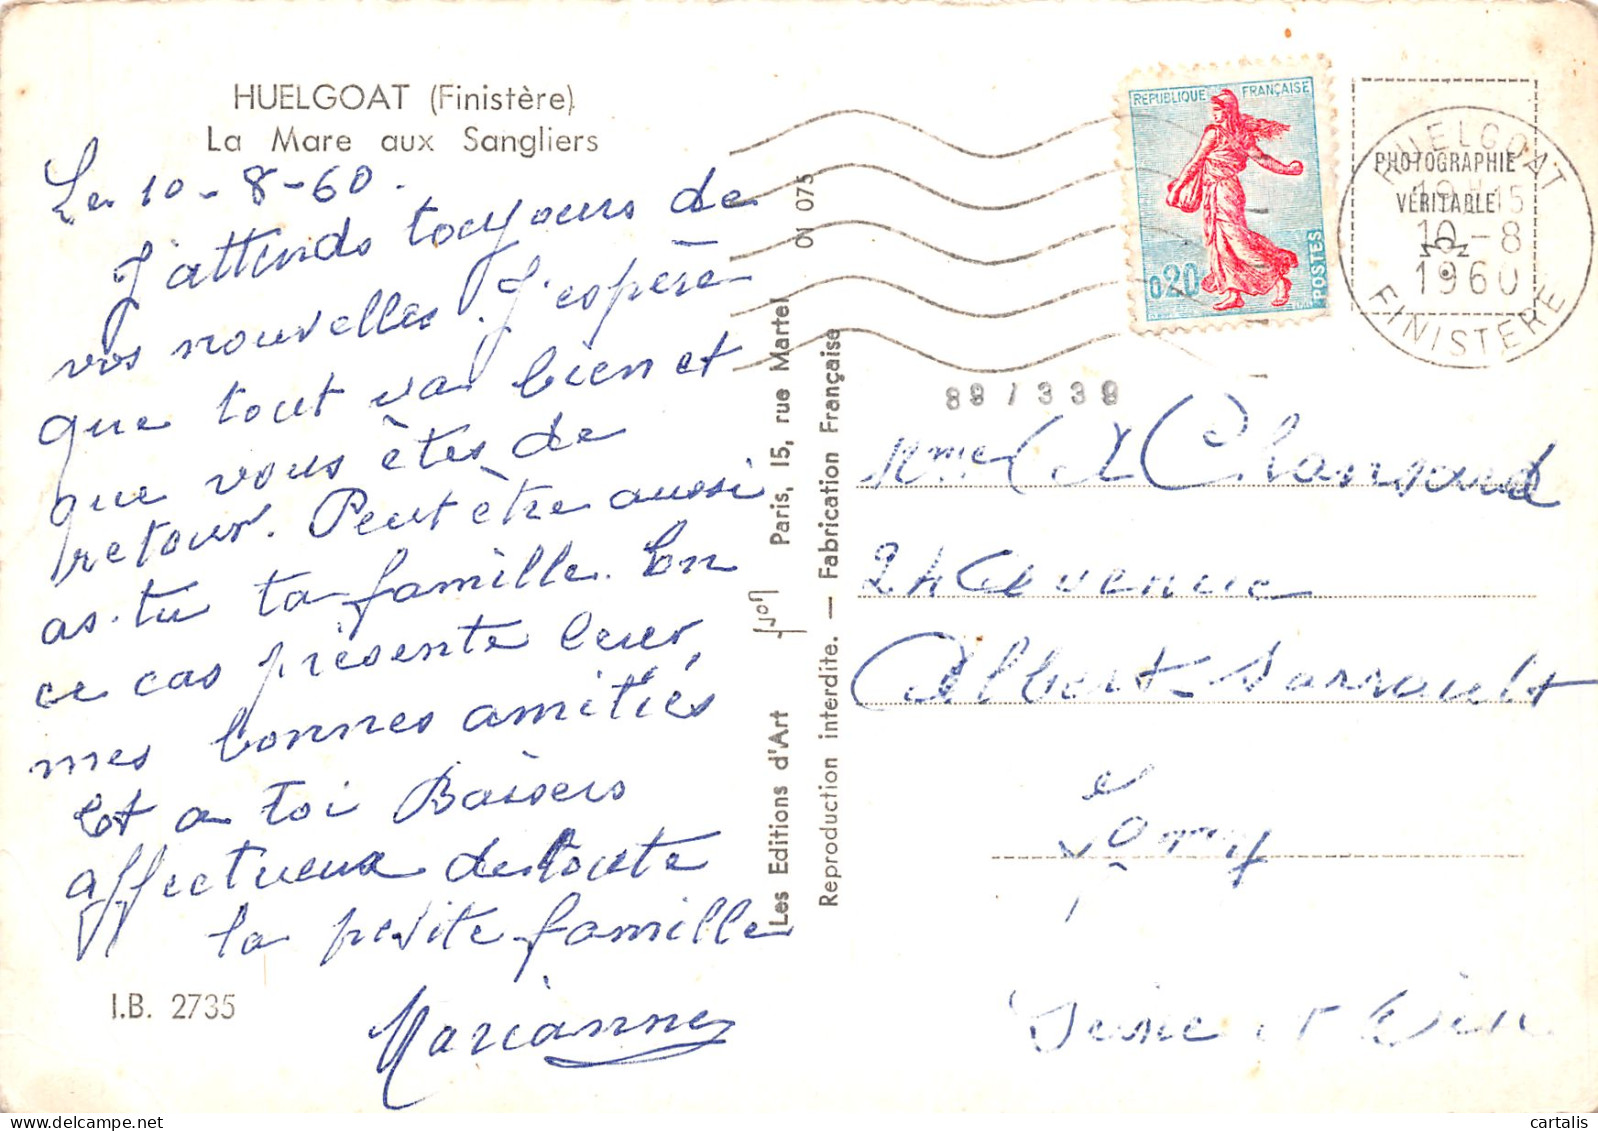 HUELGOAT (Finistère)
La Mare aux Sangliers
Le 10-8-60.
J'attends toujours de
vos nouvelles. J'espère
que tout va bien et
que vous êtes de
retour. Peut être aussi
as-tu ta famille. En
ce cas présente leur,
mes bonnes amitiés
Et a toi Baisers
affectueux de toute
la petite famille
Marianne
I.B. 2735
Les Editions d'Art Paris, 15, rue Martel 01 075
Reproduction interdite. — Fabrication Française
REPUBLIQUE FRANÇAISE
0,20
POSTES
PHOTOGRAPHIE
VÉRITABLE
HUELGOAT
10-8
1960
FINISTERE
89 / 339
Mme
24 Avenue
Albert Sarrault
Seine et Oise